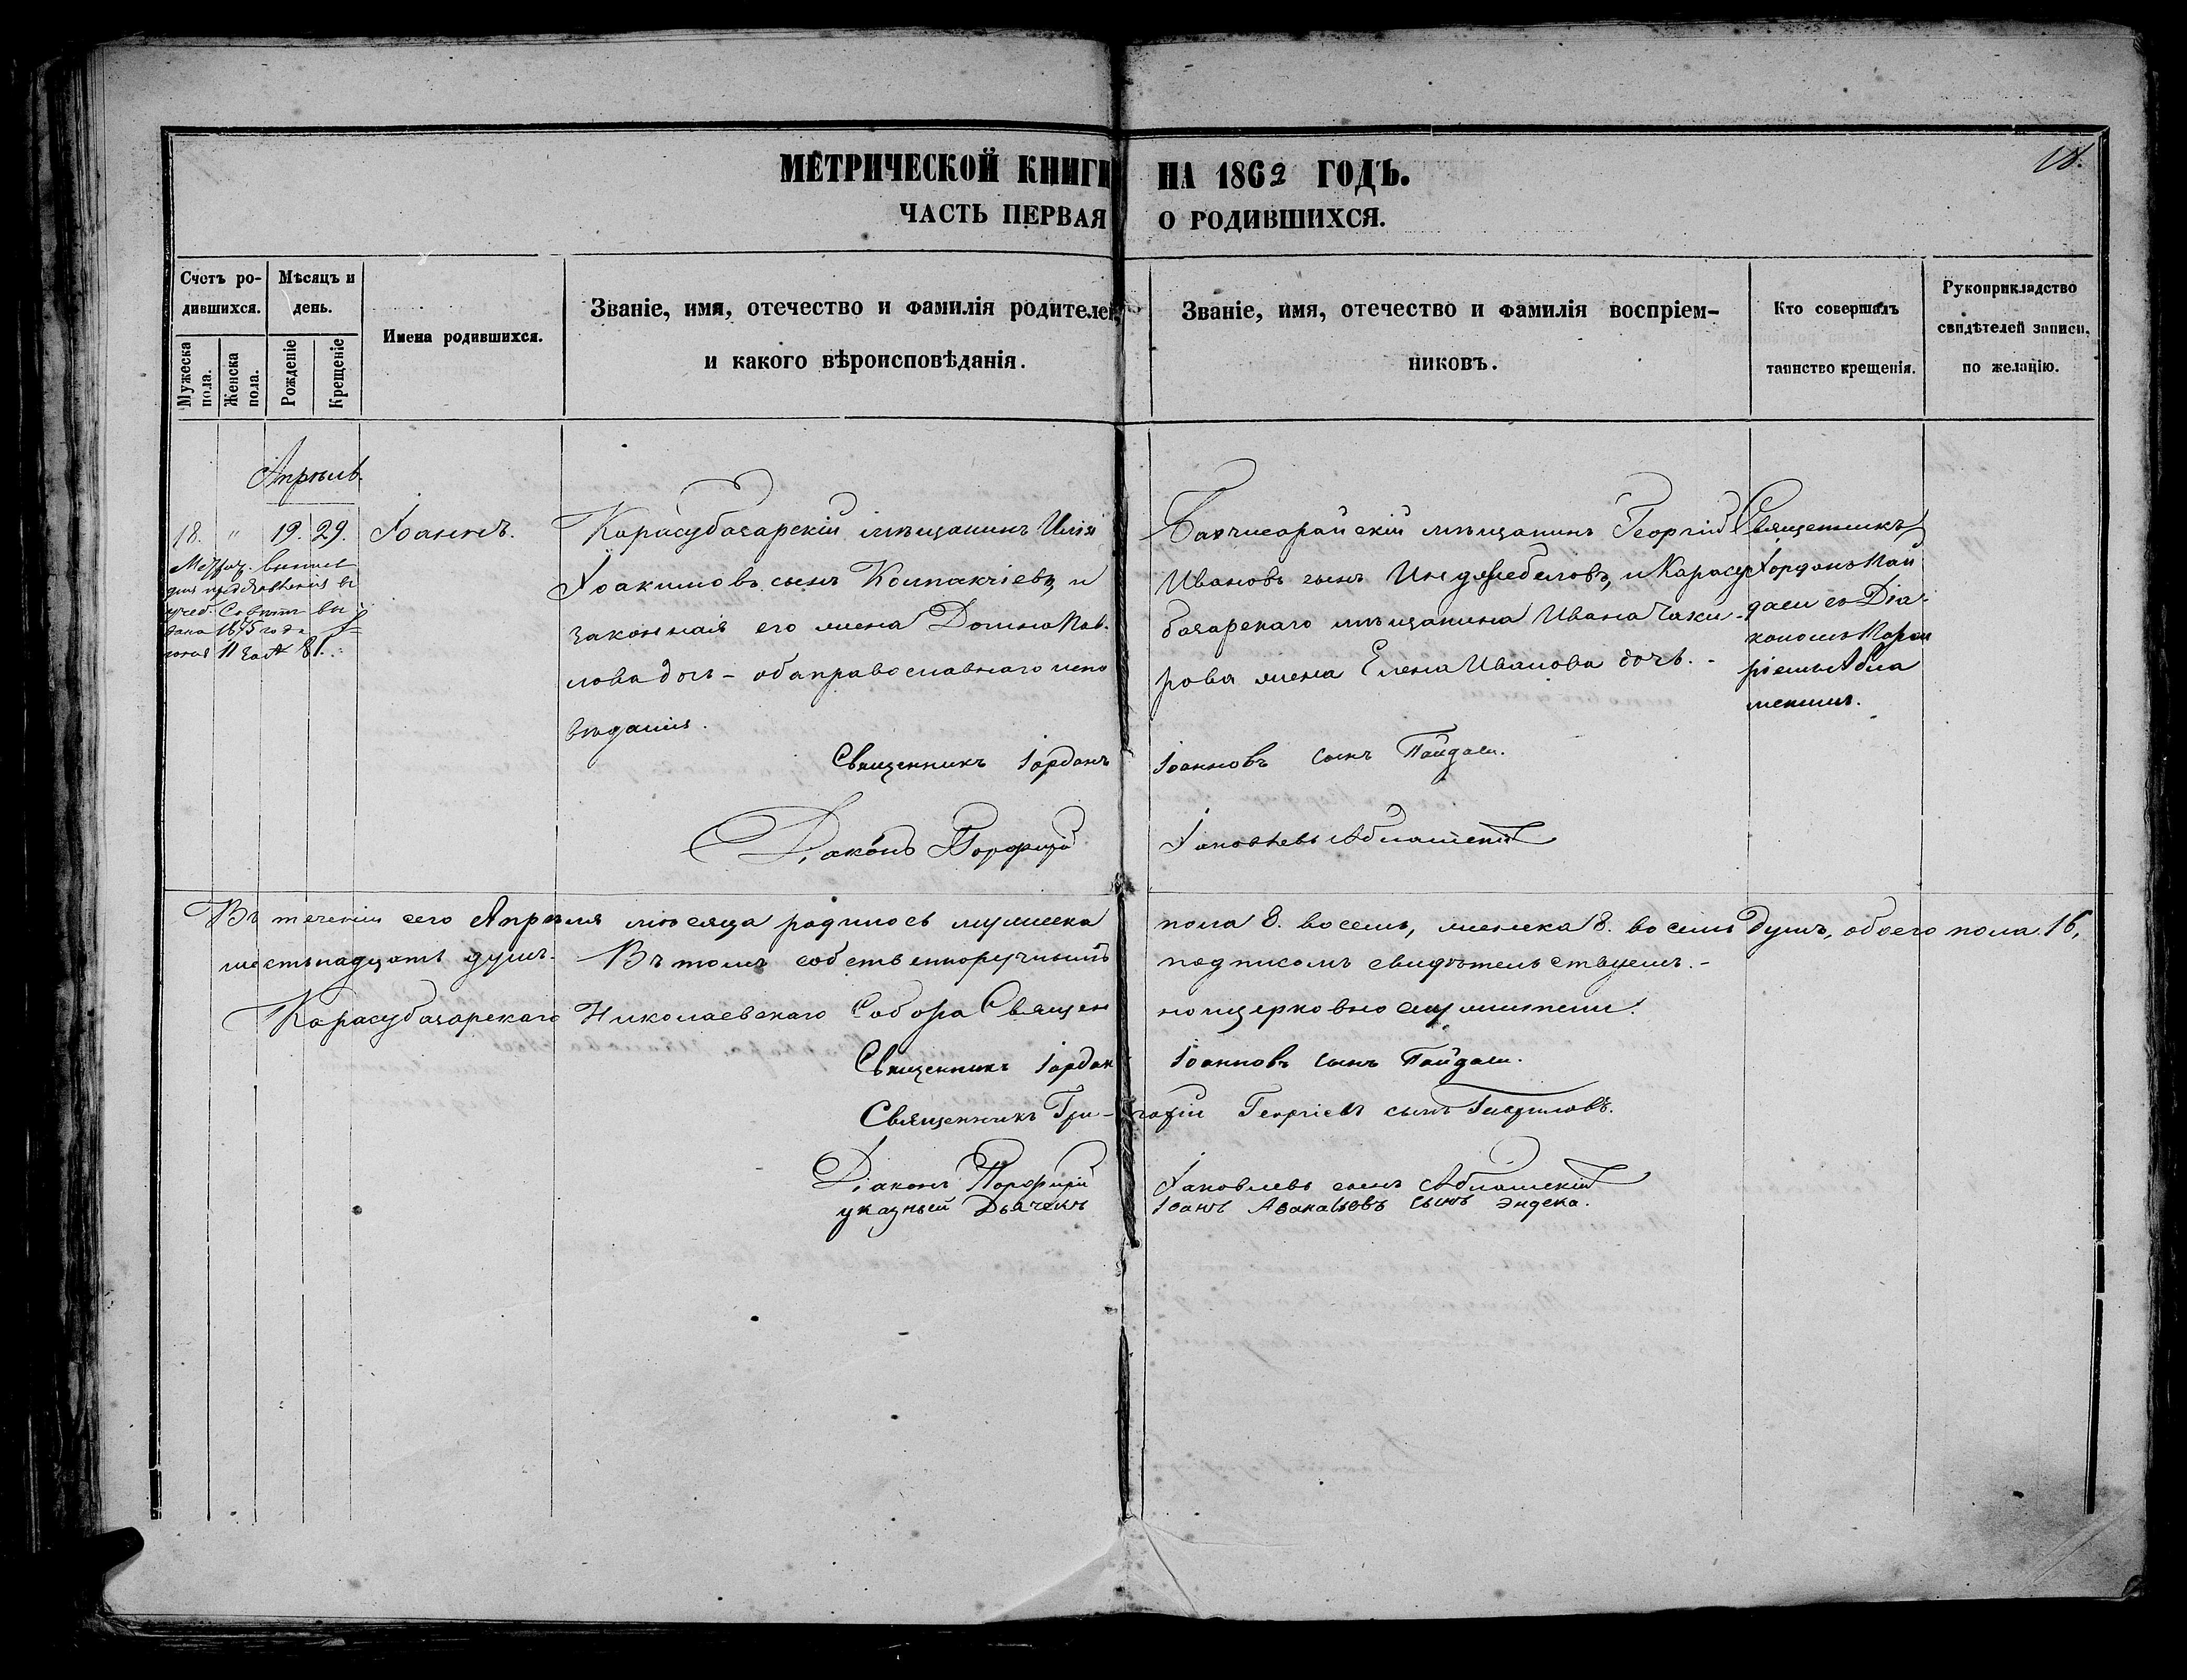 18.
МЕТРИЧЕСКОЙ КНИГИ НА 1862 ГОДЪ.
ЧАСТЬ ПЕРВАЯ О РОДИВШИХСЯ.
Счетъ родившихся.
Мужеска пола.
Женска пола.
Мѣсяцъ и день.
Рожденіе
Крещеніе
Имена родившихся.
Званіе, имя, отечество и фамилія родителей,
и какого вѣроисповѣданія.
Званіе, имя, отечество и фамилія воспріем-
никовъ.
Кто совершалъ
таинство крещенія.
Рукоприкладство
свидѣтелей записи,
по желанію.
Апрѣль.
18. " 19. 29. Іоаннъ.
выпись
для предъявленія въ
дана 1875 года
Карасубазарскій мѣщанинъ Илія
Іоакимовъ сынъ Колпакчіевъ, и
законная его жена Домна Пав-
лова дочь - оба православнаго испо
вѣданія.
Бахчисарайскій мѣщанинъ Георгій
Ивановъ сынъ и Карасу
базарскаго мѣщанина Ивана Чаки-
рова жена Елена Иванова дочь. -
Священникъ
Іорданъ Пай
даси съ Діа-
кономъ Порфи
ріемъ Абла
Священникъ Іорданъ Іоанновъ сынъ Пайдаси.
Діаконъ Порфирій Іаковлевъ
Въ теченіи сего Апрѣля мѣсяца родилось мужеска пола 8. восемь, женска 8. восемь душъ, обоего пола 16,
шестьнадцать душъ. Въ томъ собственноручнымъ подписомъ свидѣтельствуемъ. -
Карасубазарскаго Николаевскаго Собора Священноцерковнослужители:
Священникъ Іорданъ Іоанновъ сынъ Пайдаси.
Священникъ Гри-горій Георгіевъ сынъ Гавриловъ.
Діаконъ Порфирій Іаковлевъ сынъ
указный Дьячекъ Іоанъ сынъ Эндека.